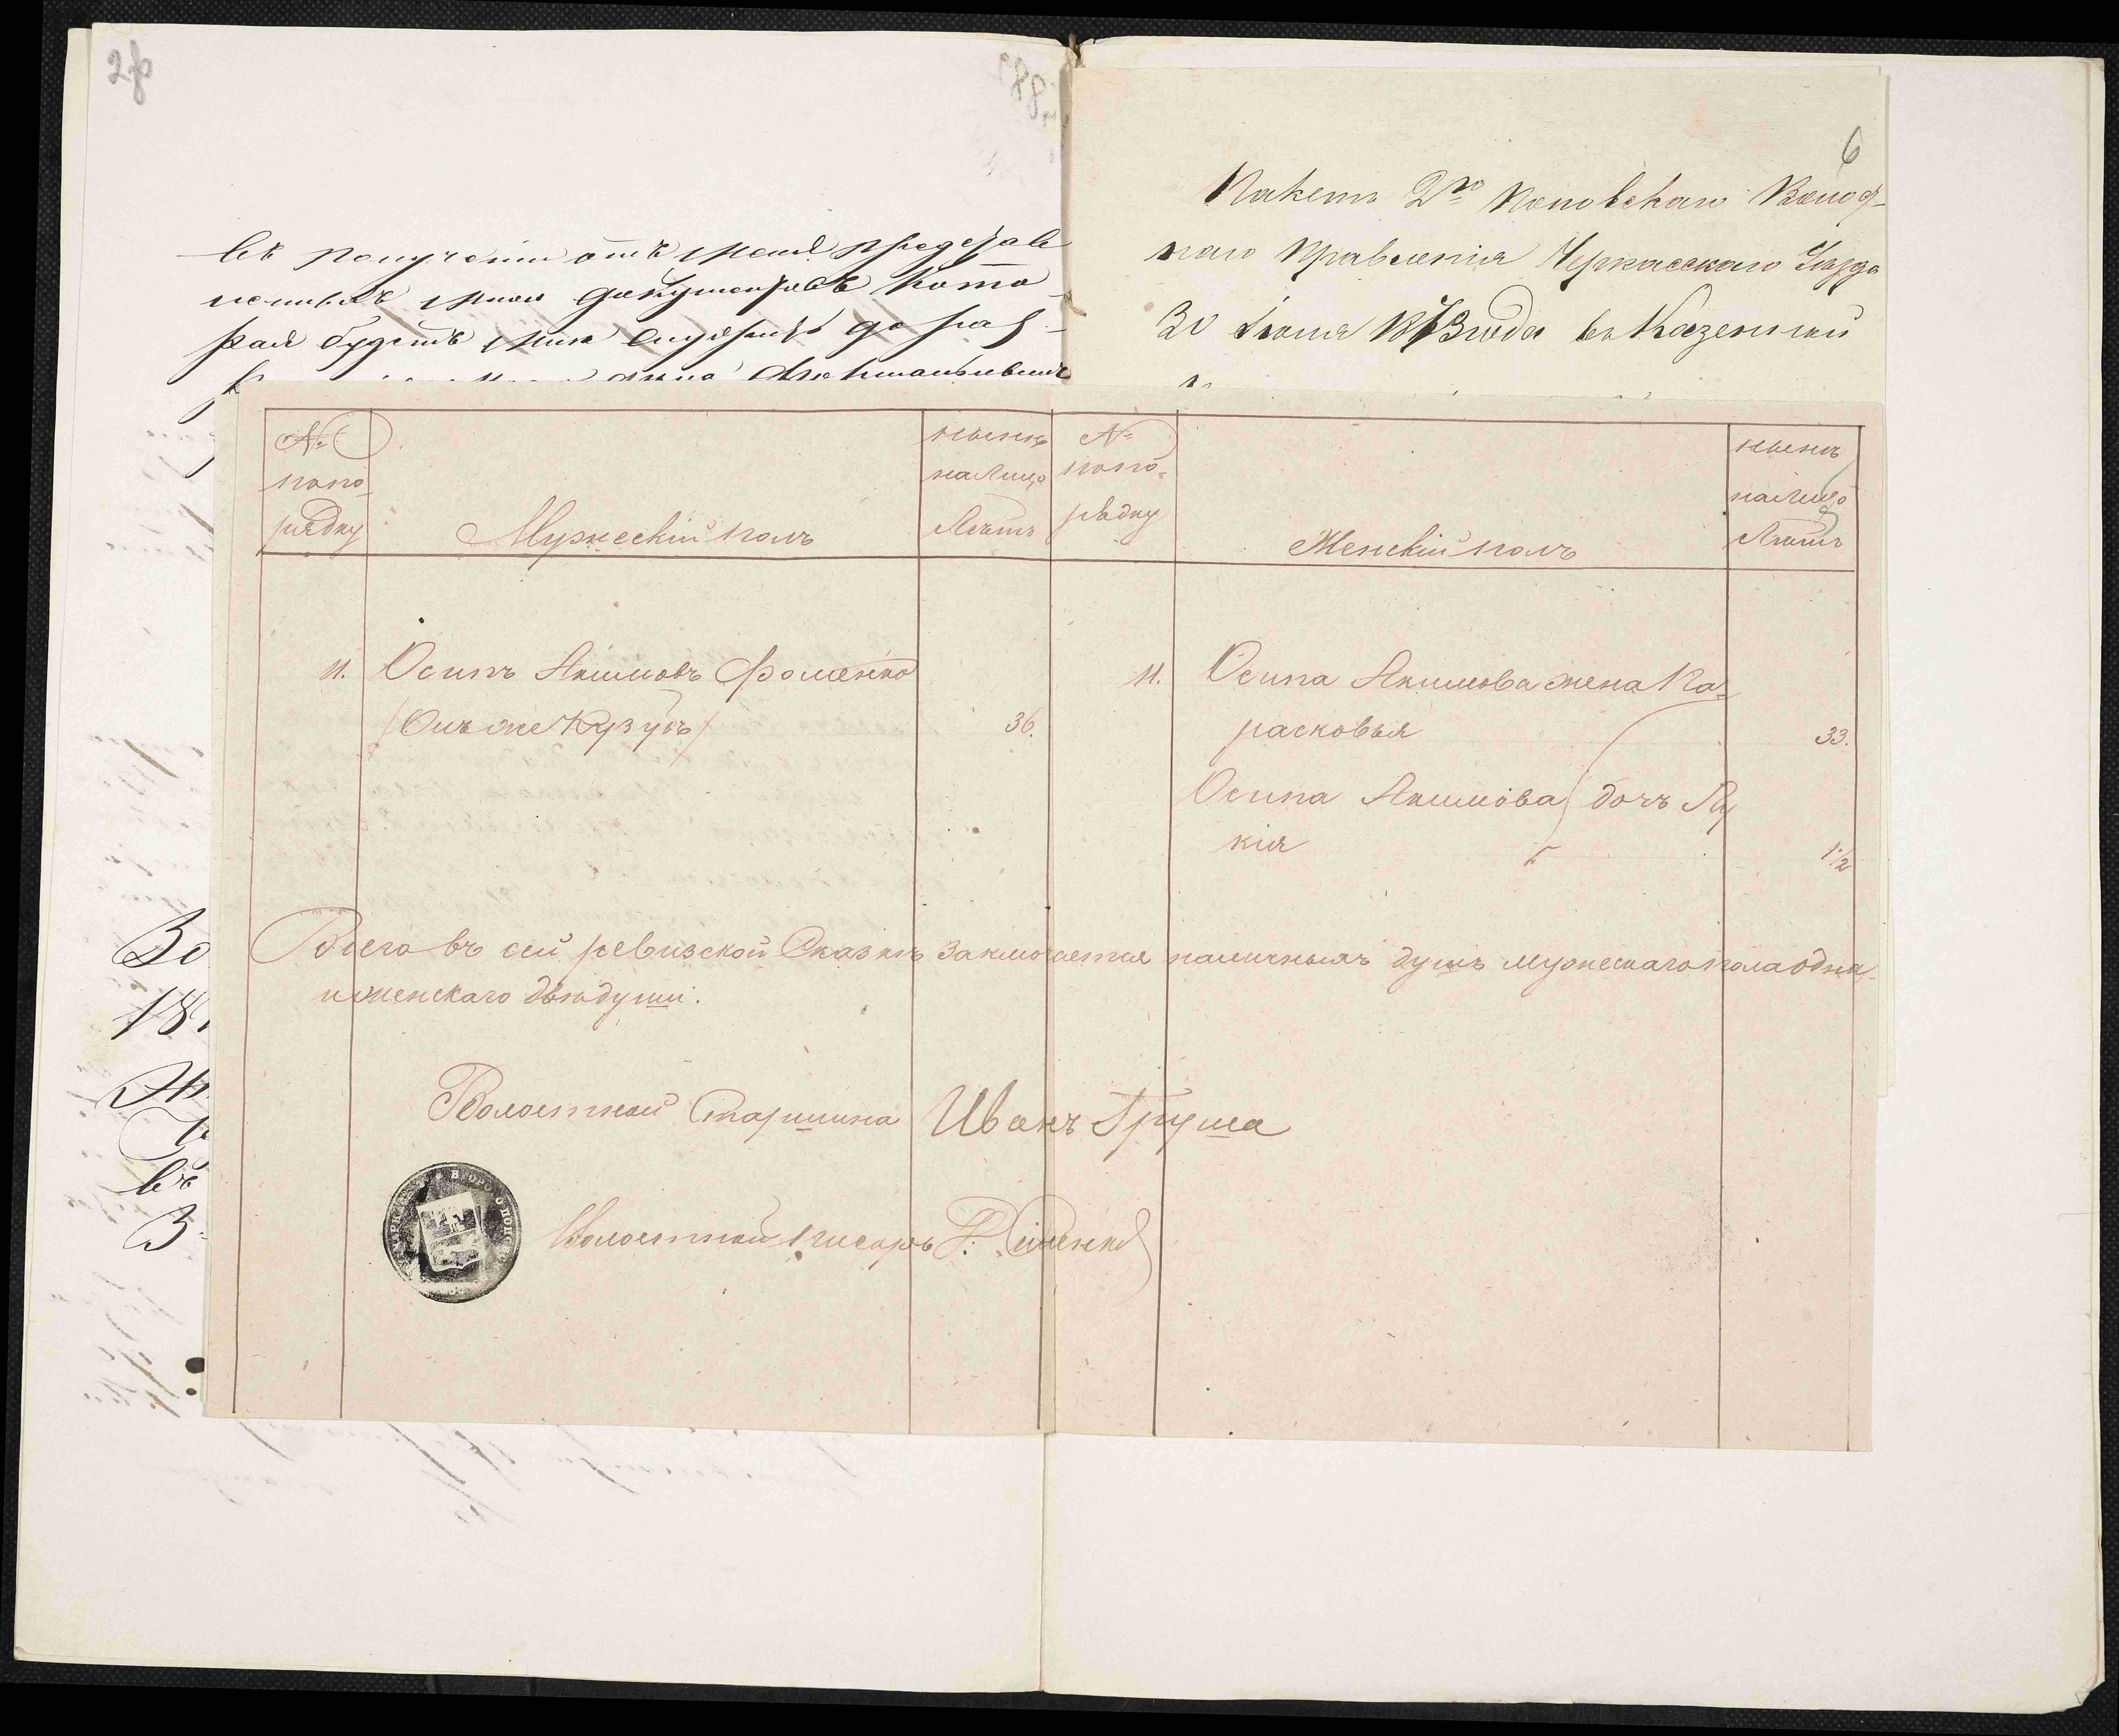 въ получении отъ меня представ
ленныхъ мною документовъ кото-
рая будетъ мнѣ служить до раз-
6
Пакетъ 2го Поповскаго Волос-
наго Правленія Черкасскаго Уѣзда
30 Іюня 1873 года въ Казенный
№
попо-
рядку
Мужескій полъ
нынѣ
налицо
Лѣтъ
№
попо-
рядку
Женскій полъ
нынѣ
налицо
Лѣтъ
11.
Осипъ Якимовъ Фоменко
(Онъ же Кузубъ)
36.
11.
Осипа Якимова жена Па-
расковья
33.
Осипа Якимова дочь Лу
кія
1 1/2
Всего въ сей ревизской Сказкѣ заключается наличныхъ душъ мужескаго пола одна,
и женскаго двѣ души.
Волостной Старшина Иванъ Груша
Волостной писарь
Зо
181
въ
З